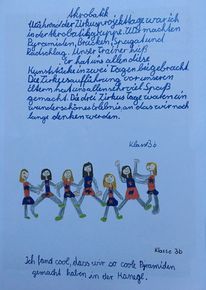 Akrobatik
Während der Zirkusprojekttage war ich
in der Akrobatikgruppe. Wir machten
Pyramiden, Brücken, Spagat und
Radschlag. Unser Trainer hieß
. Er hat uns allen diese
Kunststücke in zwei Tagen beigebracht.
Die Zirkusaufführung vor unseren
Eltern hat uns allen sehr viel Spaß
gemacht. Die drei Zirkustage waren ein
wunderschönes Erlebnis, an das wir noch
lange denken werden.
Klasse 3b
Klasse 3b
Ich fand cool, dass wir so coole Pyramiden
gemacht haben in der Manege.